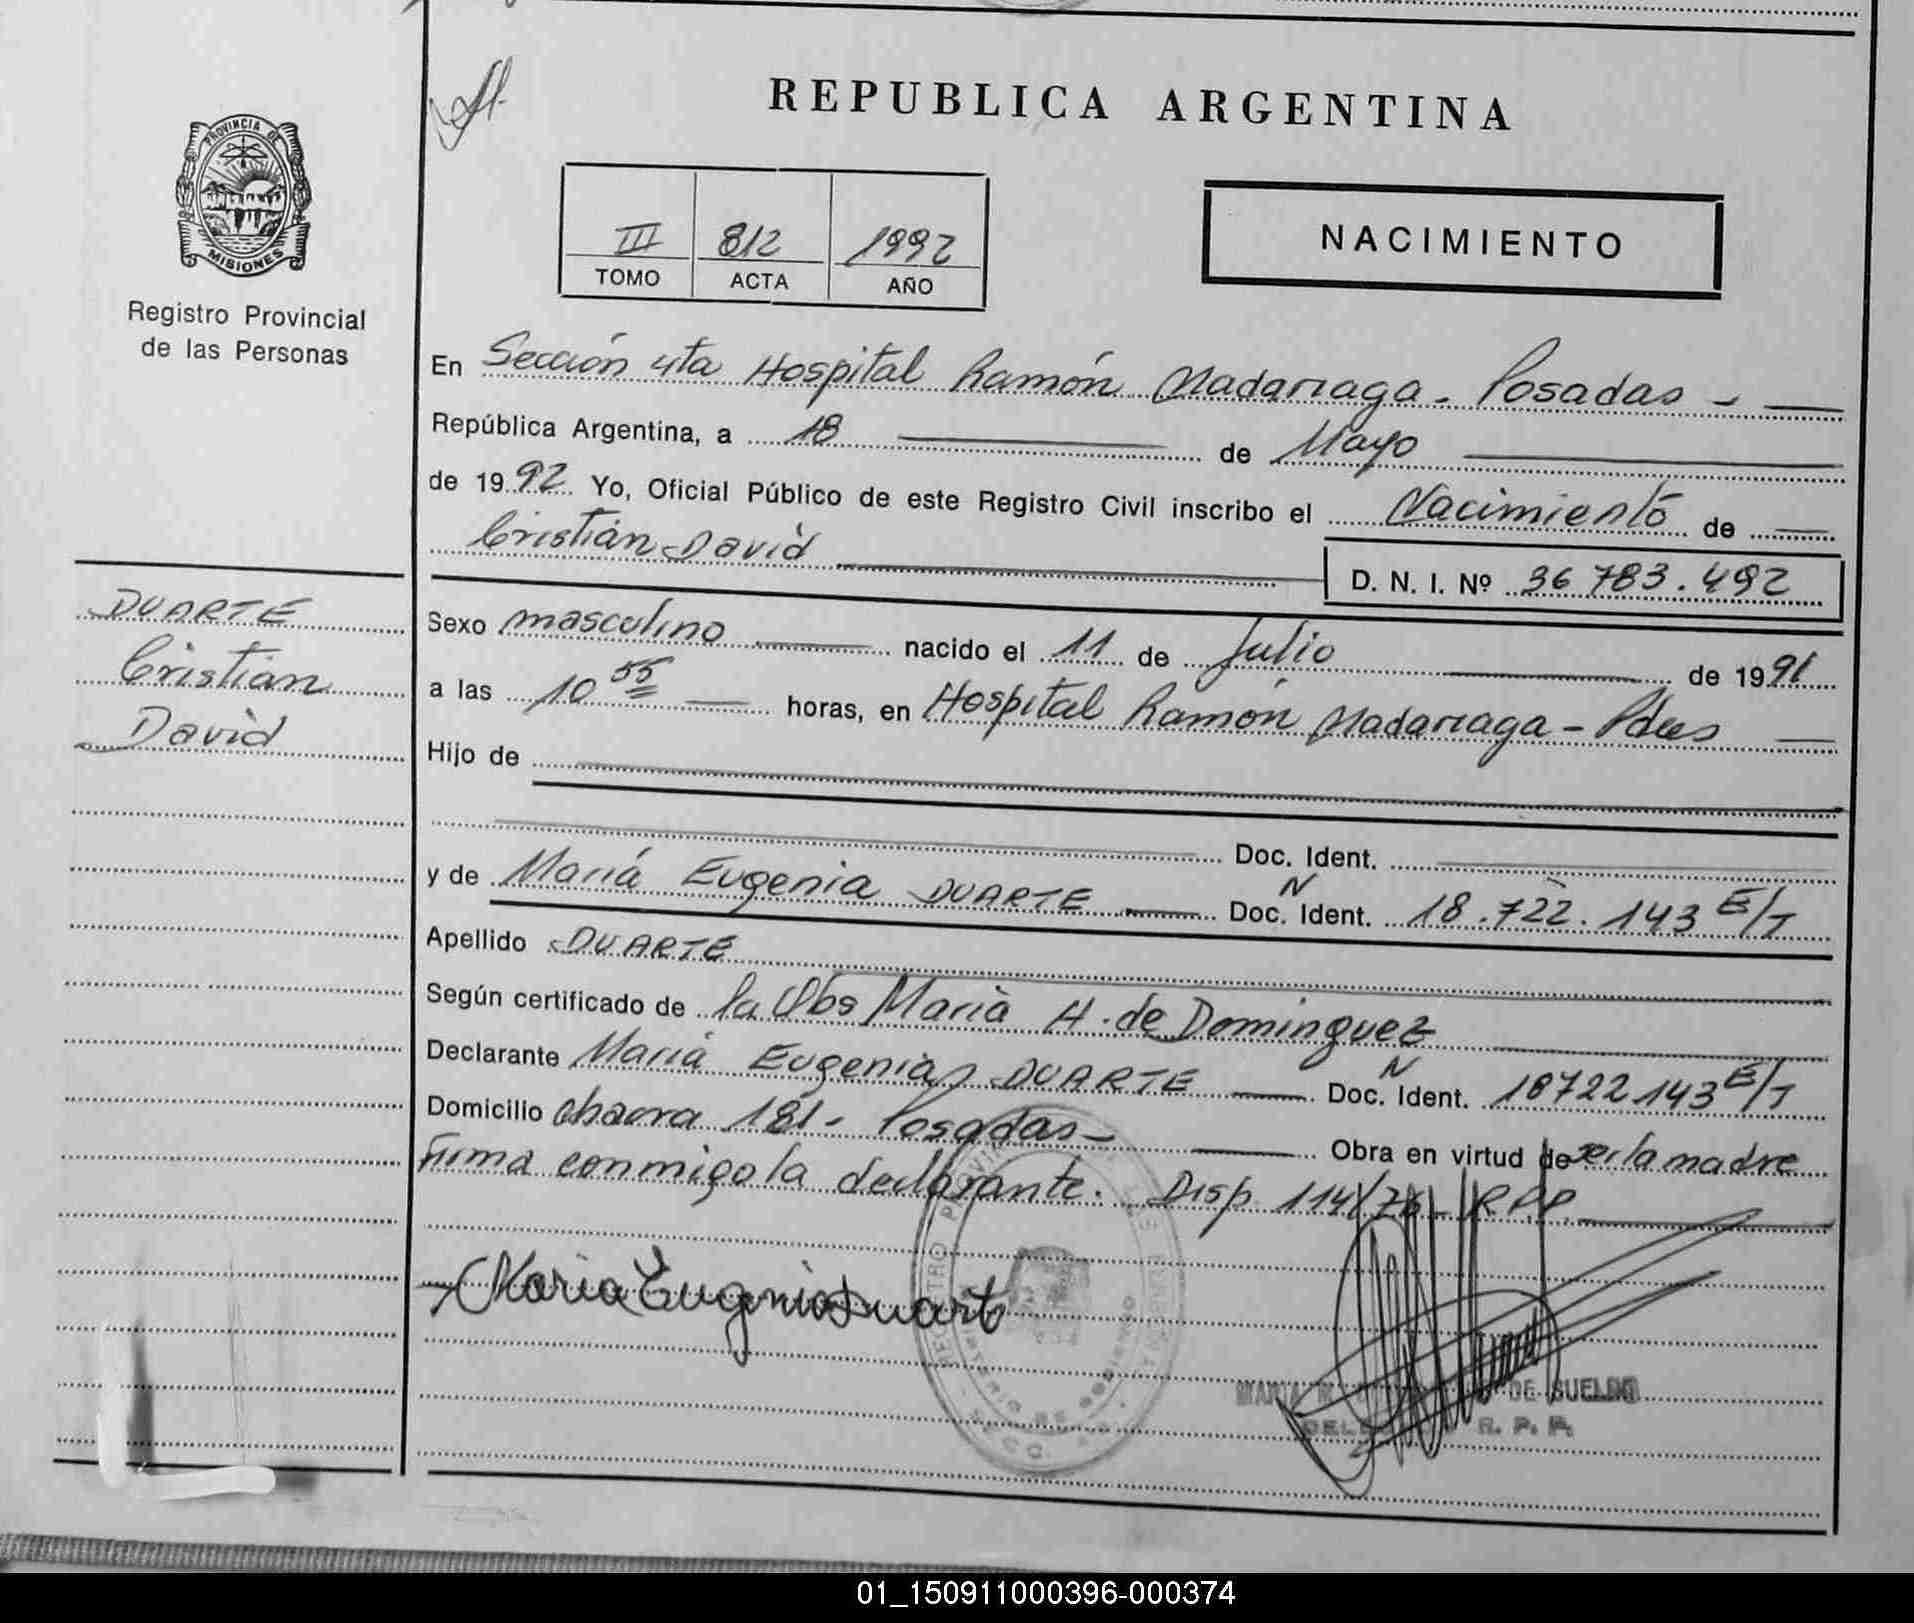 REPUBLICA ARGENTINA
PROVINCIA DE
MISIONES
Registro Provincial
de las Personas
III 812 1992
TOMO ACTA AÑO
NACIMIENTO
En Sección 4ta Hospital Ramón Madariaga - Posadas -
República Argentina, a 18 de Mayo
de 1992 Yo, Oficial Público de este Registro Civil inscribo el Nacimiento de
Cristian David
D. N. I. Nº 36 783.492
DUARTE
Cristian
David
Sexo masculino nacido el 11 de Julio de 1991
a las 10 55 horas, en Hospital Ramón Madariaga - Pdas
Hijo de
Doc. Ident.
y de Maria Eugenia DUARTE Doc. N Ident. 18.722.143 E/T
Apellido DUARTE
Según certificado de la Obs Maria H. de Dominguez
Declarante Maria Eugenia DUARTE Doc. N Ident. 18722143 E/T
Domicilio chacra 181 - Posadas - Obra en virtud de ser la madre
Firma conmigo la declarante. Disp 114/78 RPP
Maria Eugenia Duarte
DE SUELDO
R. P. P.
01_150911000396-000374